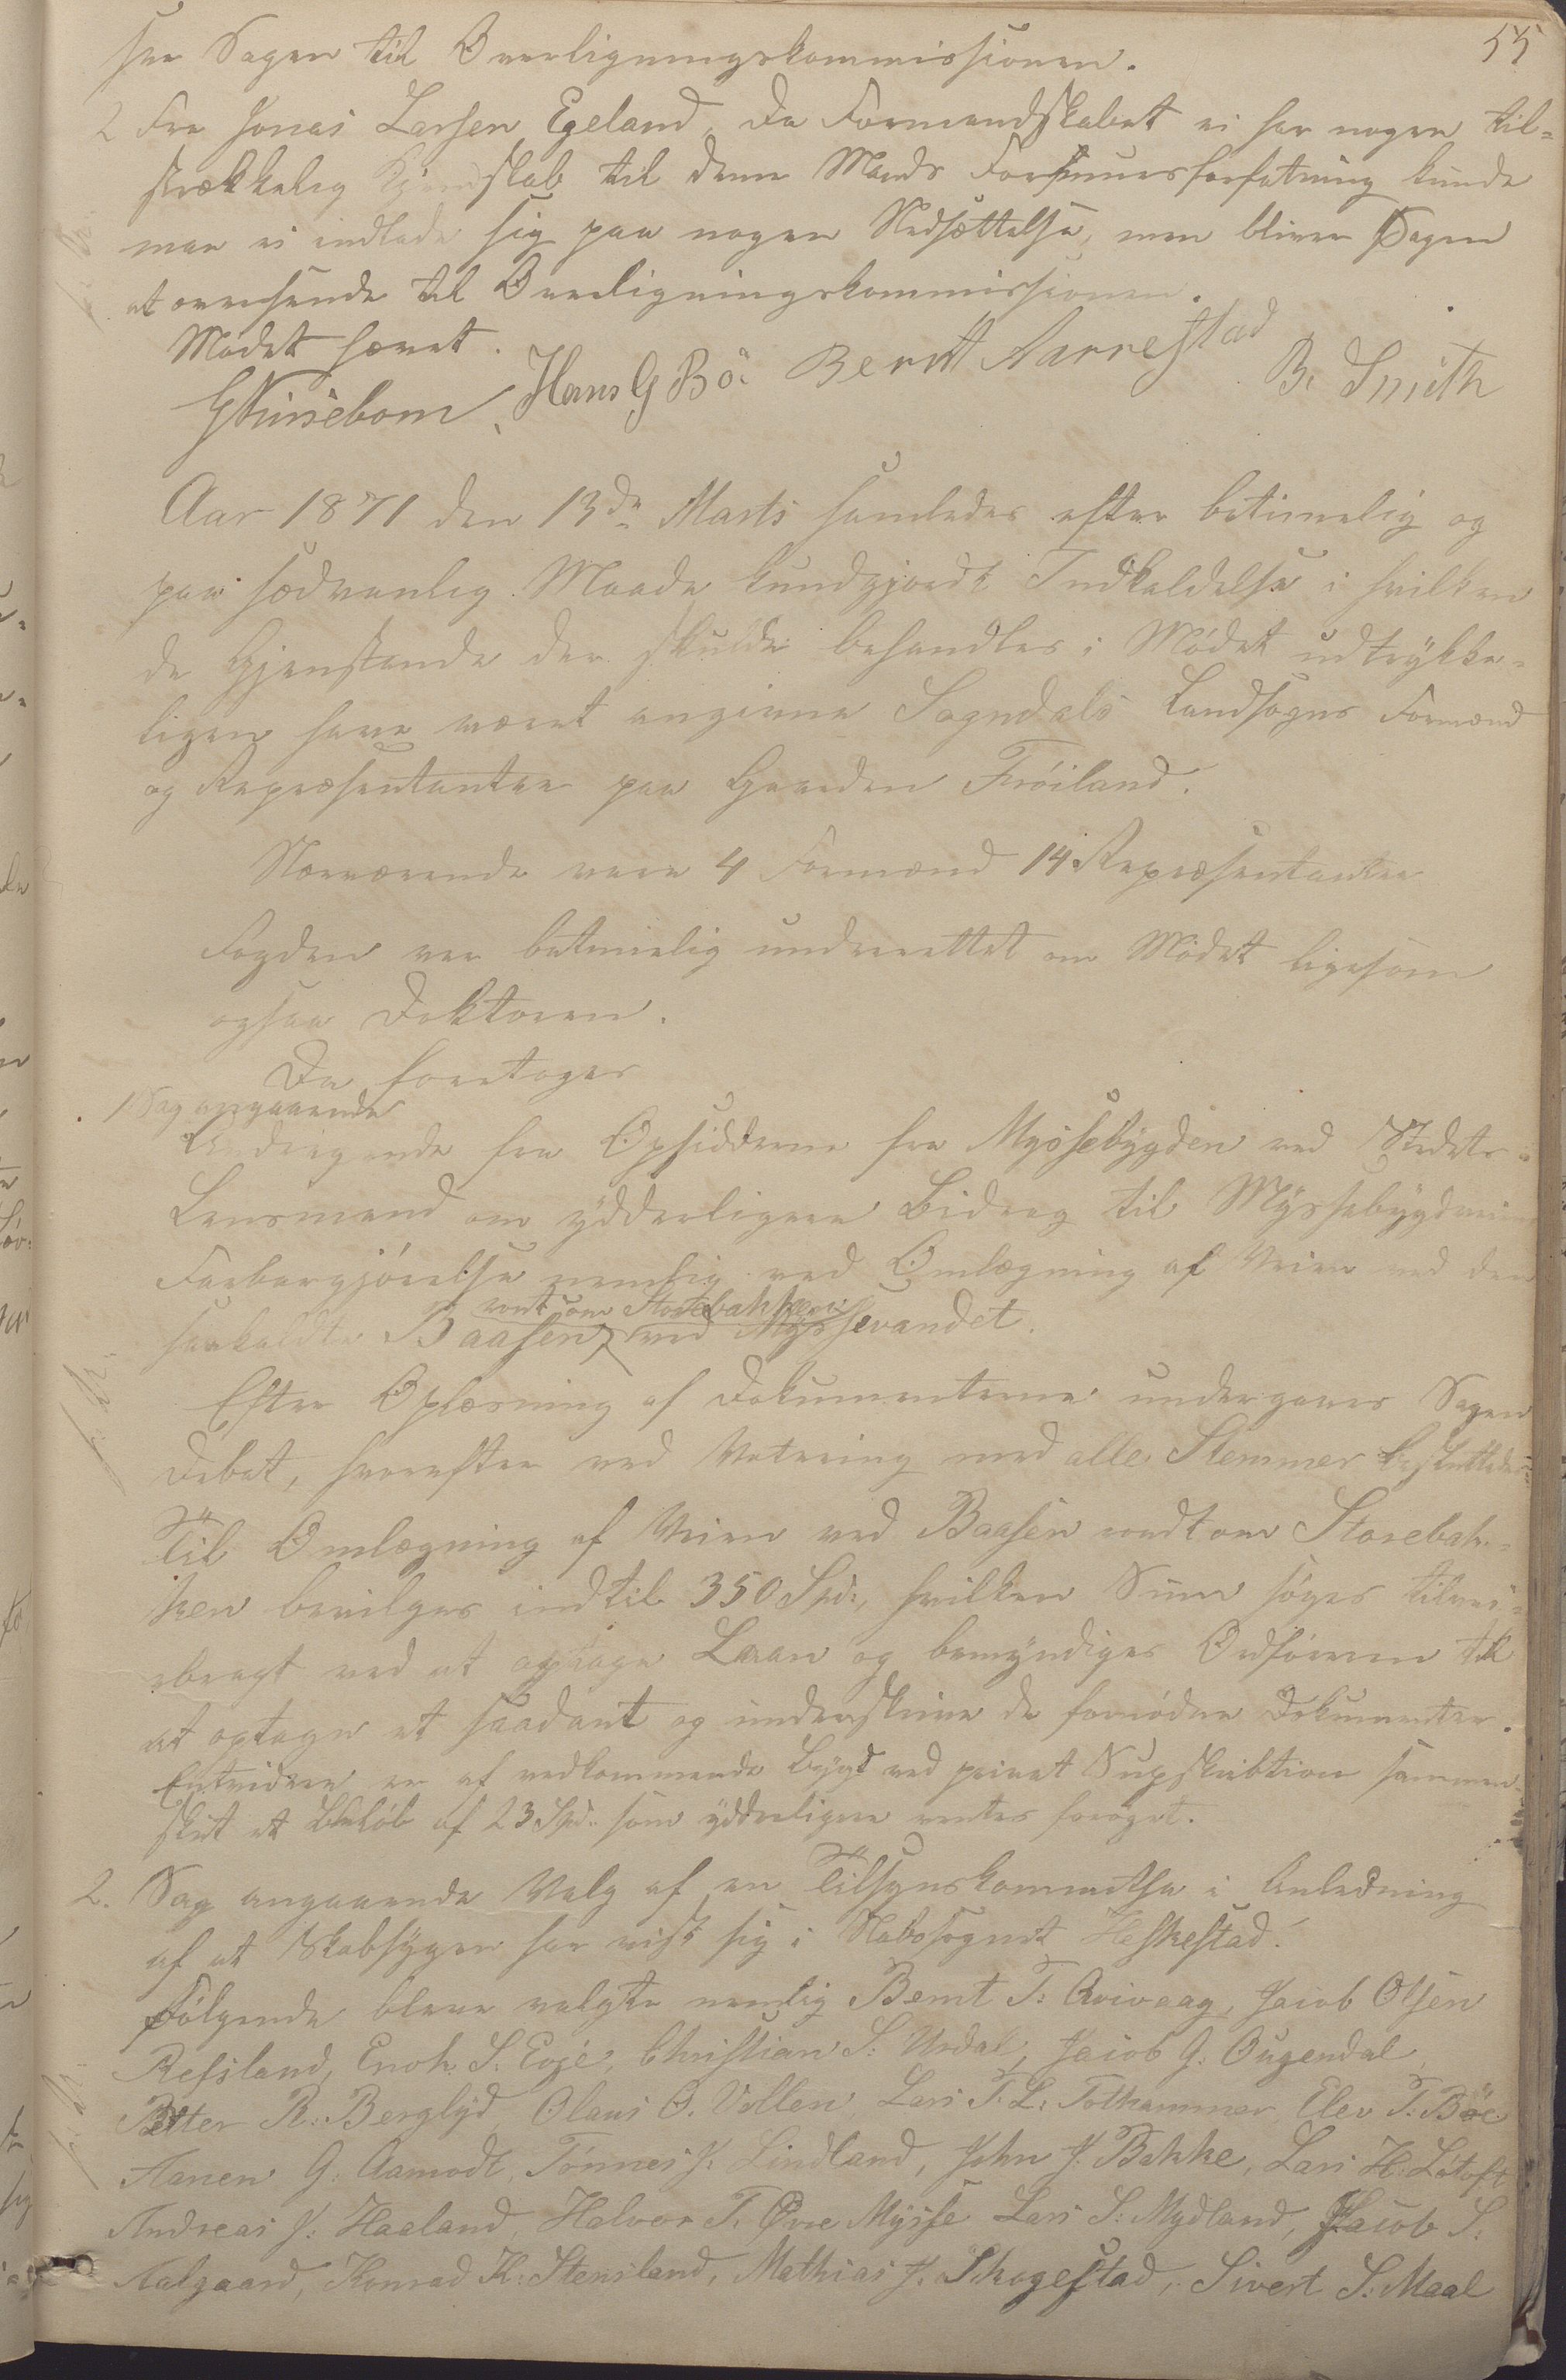 55
ses Sagen til Overligningskommissionen.
2 Fra Jonas Larsen Egeland. Da Formandskabet ei har nogen til-
strækkelig Kjendskab til denne Mands Formuesforfatning kunde
man ei indlade sig paa nogen Nedsættelse, men bliver Sagen
at oversende til Overligningskommissionen.
Mødet hævet.
Hans G Bö. Berntt Aarrestad B. Smith
Aar 1871 den 13de Marts samledes efter betimelig og
paa sædvanlig Maade kundgjordt Indkaldelse i hvilken
de Gjenstande der skulde behandles i Mødet udtrykke-
ligen have været angivne Sogndals Landsogns Formænd
og Repræsentanter paa Gaarden Frøiland.
Nærværende vare 4 Formænd 14 Repræsentanter
Fogden var betimelig underrettet om Mødet ligesom
ogsaa Doktoren.
Da foretoges
1 Sag angaaende
Andragende fra Opsidderne fra Myssebygden ved Stedets
Lensmand om ydderligere Bidrag til Myssebygdveiens
Farbargjørelse nemlig ved Omlægning af Veien ved den
rundt om Storebakken
saakaldte Baasen ved Myssevandet.
Efter Oplæsning af Dokumenterne undergaves Sagen
Debat, hvorefter ved Votering med alle Stemmer besluttedes:
Til Omlægning af Veien ved Baasen rundt om Storebak-
ken bevilges indtil 350 Spd., hvilken Sum søges tilvei-
ebragt ved at optage Laan og bemyndiges Ordføreren til
at optage et saadant og underskrive de fornødne Dokumenter.
Entvidere er af vedkommende Bygd ved privat Supskribtion sammen-
skut et Beløb af 23 Spd. som ydderligere ventes forøget.
2. Sag angaaende Valg af en Tilsynskommitse i Anledning
af at Skabsygen har vist sig i Nabosognet Heskestad.
Følgende bleve valgte nemlig Bernt T. Qvivaag, Jacob Olsen
Refsland, Enok S. Eeje, Christian S. Urdal, Jacob G. Ougendal,
Petter R. Berglyd, Olaus O. Vellen Lars T. L. Tothammer, Elev T. Böe
Aanen G. Aamodt, Tönnes J. Lindland, John J. Bakke, Lars H. Lötoft
Andreas J. Haaland, Halvor T. Øvre Mysse Lars S. Mydland, Jacob S.
Aalgaard, Konrad K. Stensland, Mathias J. Skogestad, Sivert S. Maal